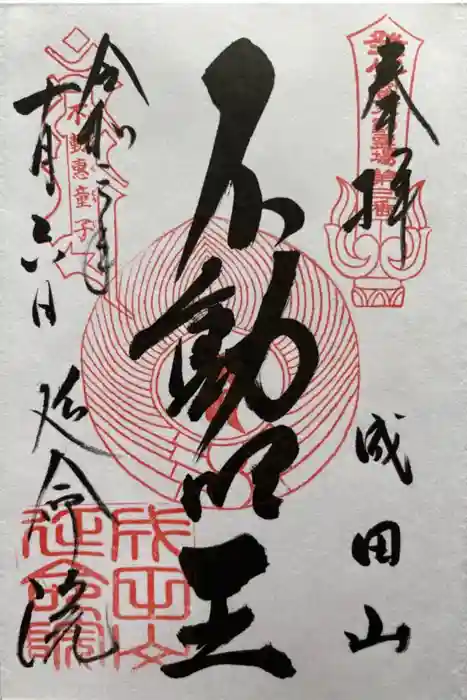 奉拝
成田山
不動明王
令和二年
十月六日
延命院
不動恵童子
成田山
延命院